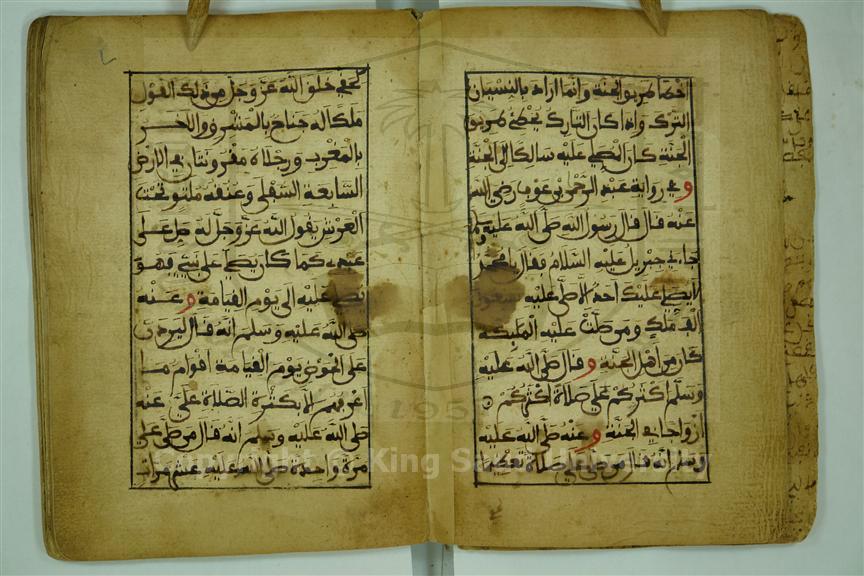 اخطا طريق الجنة وانما اراد بالنسيان
الترك واذا كان التارك يخطئ طريق
الجنة كان المصلي عليه سالكا الى الجنة
وفي رواية عبد الرحمن بن عوف رضي الله
عنه قال قال رسول الله صلى الله عليه وسلم
جاءني جبريل عليه السلام وقال يا محمد
لا يصلي عليك احد الا صلى عليه سبعون
الف ملك ومن صلت عليه الملئكة
كان من اهل الجنة وقال صلى الله عليه
وسلم اكثركم علي صلاة اكثركم
ازواجا في الجنة وعنه صلى الله عليه
وسلم انه قال من صلى علي صلاة تعظيما
لحقي خلق الله عز وجل من ذلك القول
ملكا له جناح بالمشرق والاخر
بالمغرب ورجلاه مقرونتان في الارض
السابعة السفلى وعنقه ملتو تحت
العرش يقول الله عز وجل له صل على
عبدي كما كان يصلي على نبيي فهو
يصلي عليه الى يوم القيامة وعنه
صلى الله عليه وسلم انه قال ليردن
على الحوض يوم القيامة اقوام ما
اعرفهم الا بكثرة الصلاة علي عنه
صلى الله عليه وسلم انه قال من صلى علي
مرة واحدة صلى الله عليه عشر مرات
Copyright © King Saud University
1957